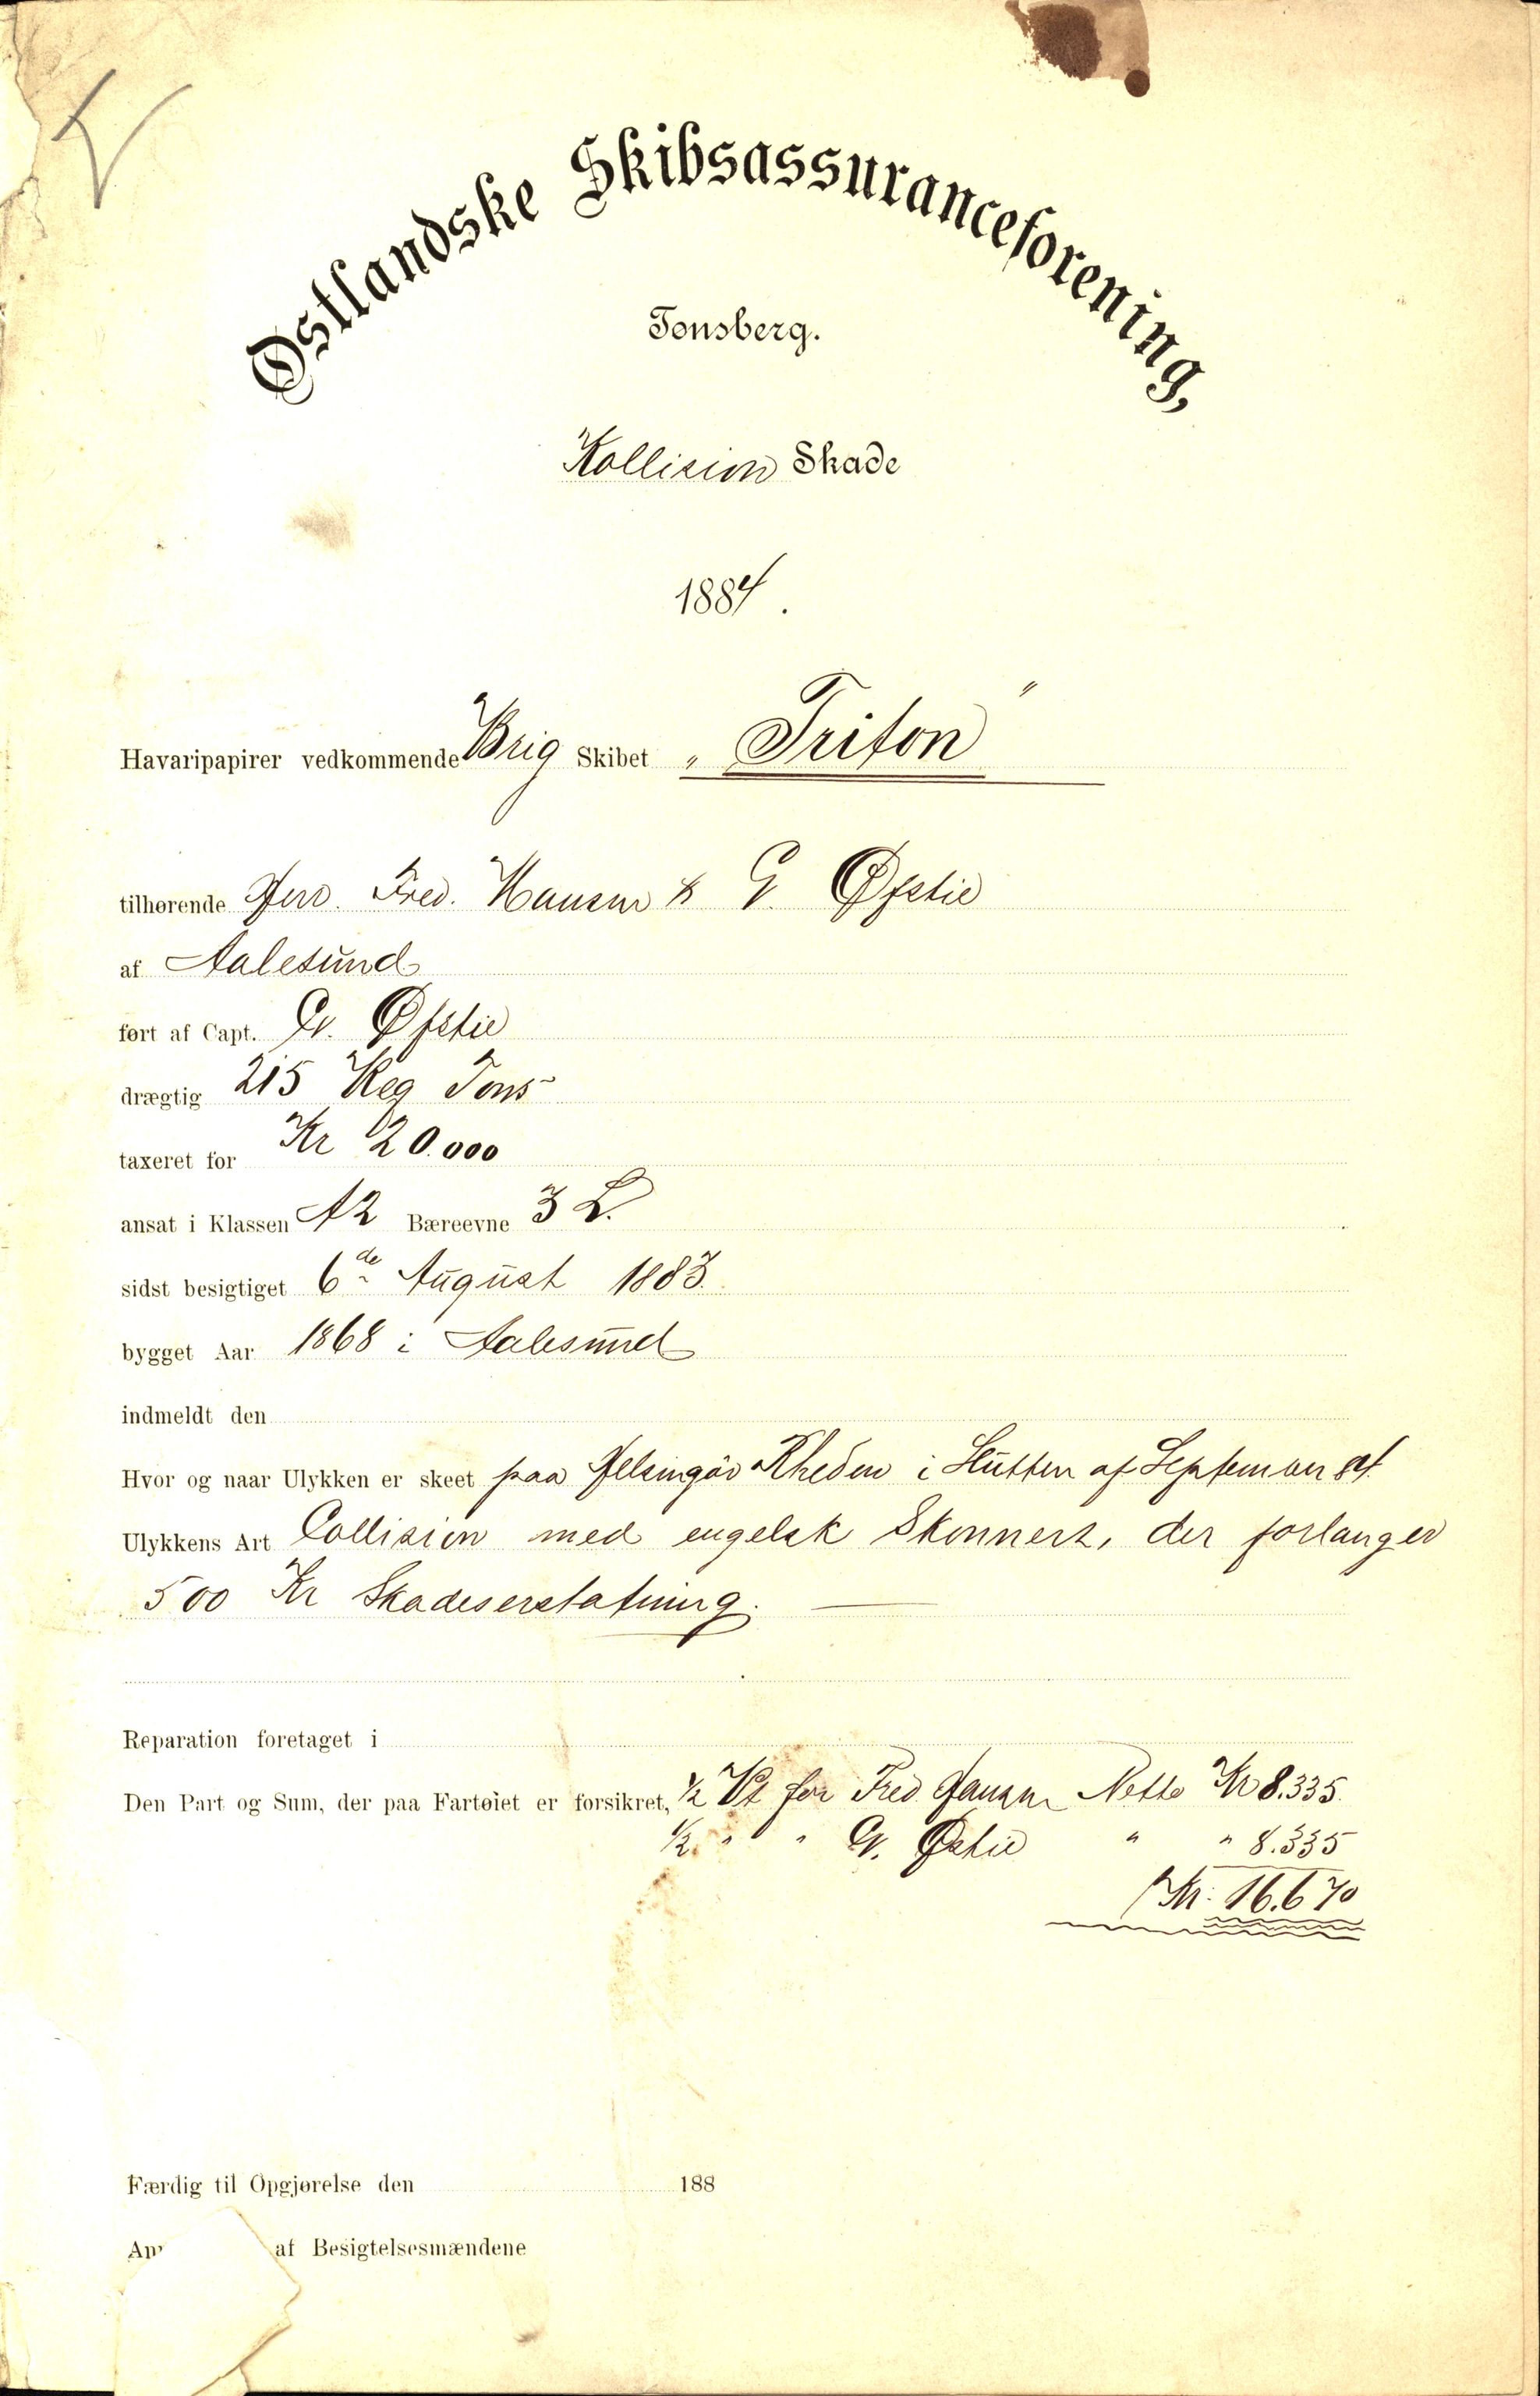 Østlandske Skibsassuranceforening,
Tønsberg.
Kollision Skade
1884.
Havaripapirer vedkommende Brig Skibet „Triton"
tilhørende Herr. Fred. Hansen & G. Øfstie
af Aalesund
ført af Capt. G. Øfstie
drægtig 215 Reg Tons
taxeret for Kr 20.000
ansat i Klassen A2 Bæreevne 3 L.
sidst besigtiget 6de August 1883.
bygget Aar 1868 i Aalesund
indmeldt den
Hvor og naar Ulykken er skeet paa Helsingör Rheden i Slutten af September 84
Ulykkens Art Collision med engelsk Skonnert, der forlanger
500 Kr Skadeserstatning.
Reparation foretaget i
Den Part og Sum, der paa Fartøiet er forsikret, 1/2 Pt for Fred Hansen Netto Kr 8.335.
1/2 " " G. Østie " " 8.335
Kr. 16.670
Færdig til Opgjørelse den 188
af Besigtelsesmændene